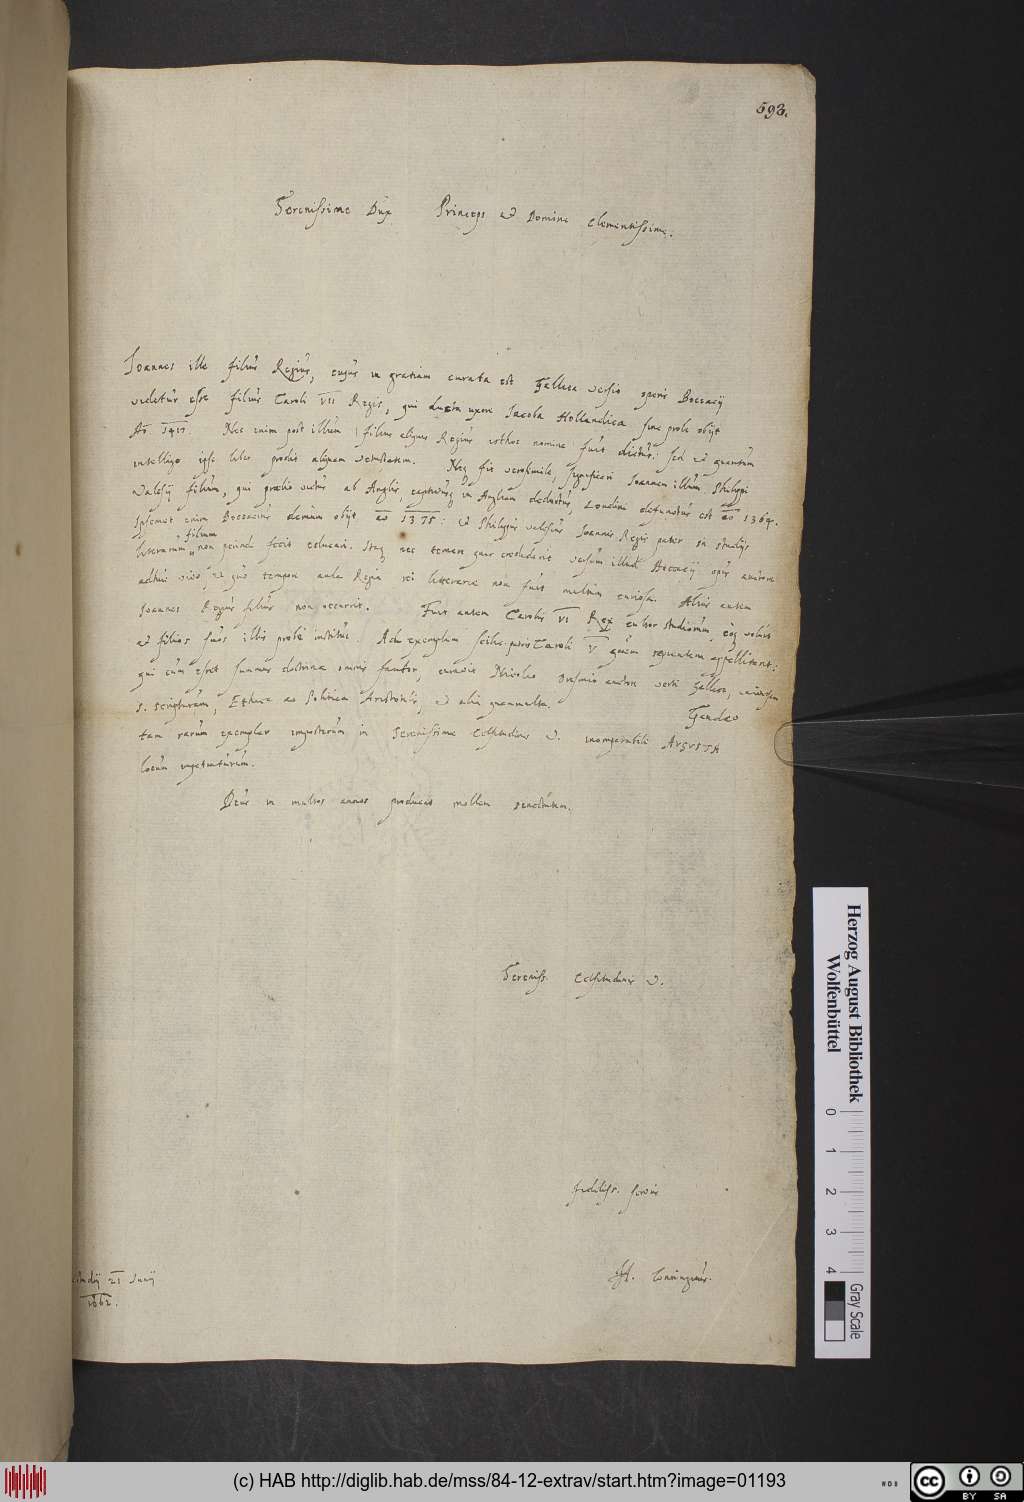 593.
Serenissime Dux Princeps et Domine Clementissime.
Joannes ille filius Regius, cujus in gratiam curata est Gallica versio operis Boccacij
videtur esse filius Caroli VII Regis, qui ducta uxore Jacoba Hollandica sine prole obijt
Ao. 1417. Nec enim post illum filius aliquis Regius isthoc nomine fuit dictus: sed et quantum
intelligo ipse liber prodit aliquam vetustatem. Neq fit verosimile, significari Joannem illum, Philippi
Valesij filium, qui prælio victus ab Anglis, captivusq in Angliam deductus, Londini defunctus est ao 1364.
Ipsemet enim Boccacius demum obijt ao 1375: et Philippus Valesius Joannis Regis pater in studijs
literarum filium non perinde fecit educari. Itaq nec temere quis crediderit versum illud Boccacij opus auctore
adhuc vivo et quo tempore aula Regia rei litterariæ non fuit multum curiosa. Alius autem
Joannes Regius filius non occurrit. Fuit autem Carolus VI Rex cultor studiorum, eoq voluit
et filios suos illis probe institui. Ad exemplum scilic. patris Caroli V quem sapientem appellitant:
qui cum esset summus doctrinæ omnis fautor, curavit Nicolao Oresmio auctore verti Gallice, universam
S. Scripturam, Ethica ac Politica Aristotelis, et alia quammulta. Gaudeo
tam rarum exemplar imposterum in Serenissimæ Celsitudinis V. incomparabili AVGVSTA
locum inventurum.
Deus in multos annos producat mollem senectutem.
Sereniss. Celsitudinis V.
fideliss. servus
H. Conringius.
21 Junij
1662.
Herzog August Bibliothek
Wolfenbüttel
0 1 2 3 4
Gray Scale
(c) HAB http://diglib.hab.de/mss/84-12-extrav/start.htm?image=01193
WDB
cc BY SA